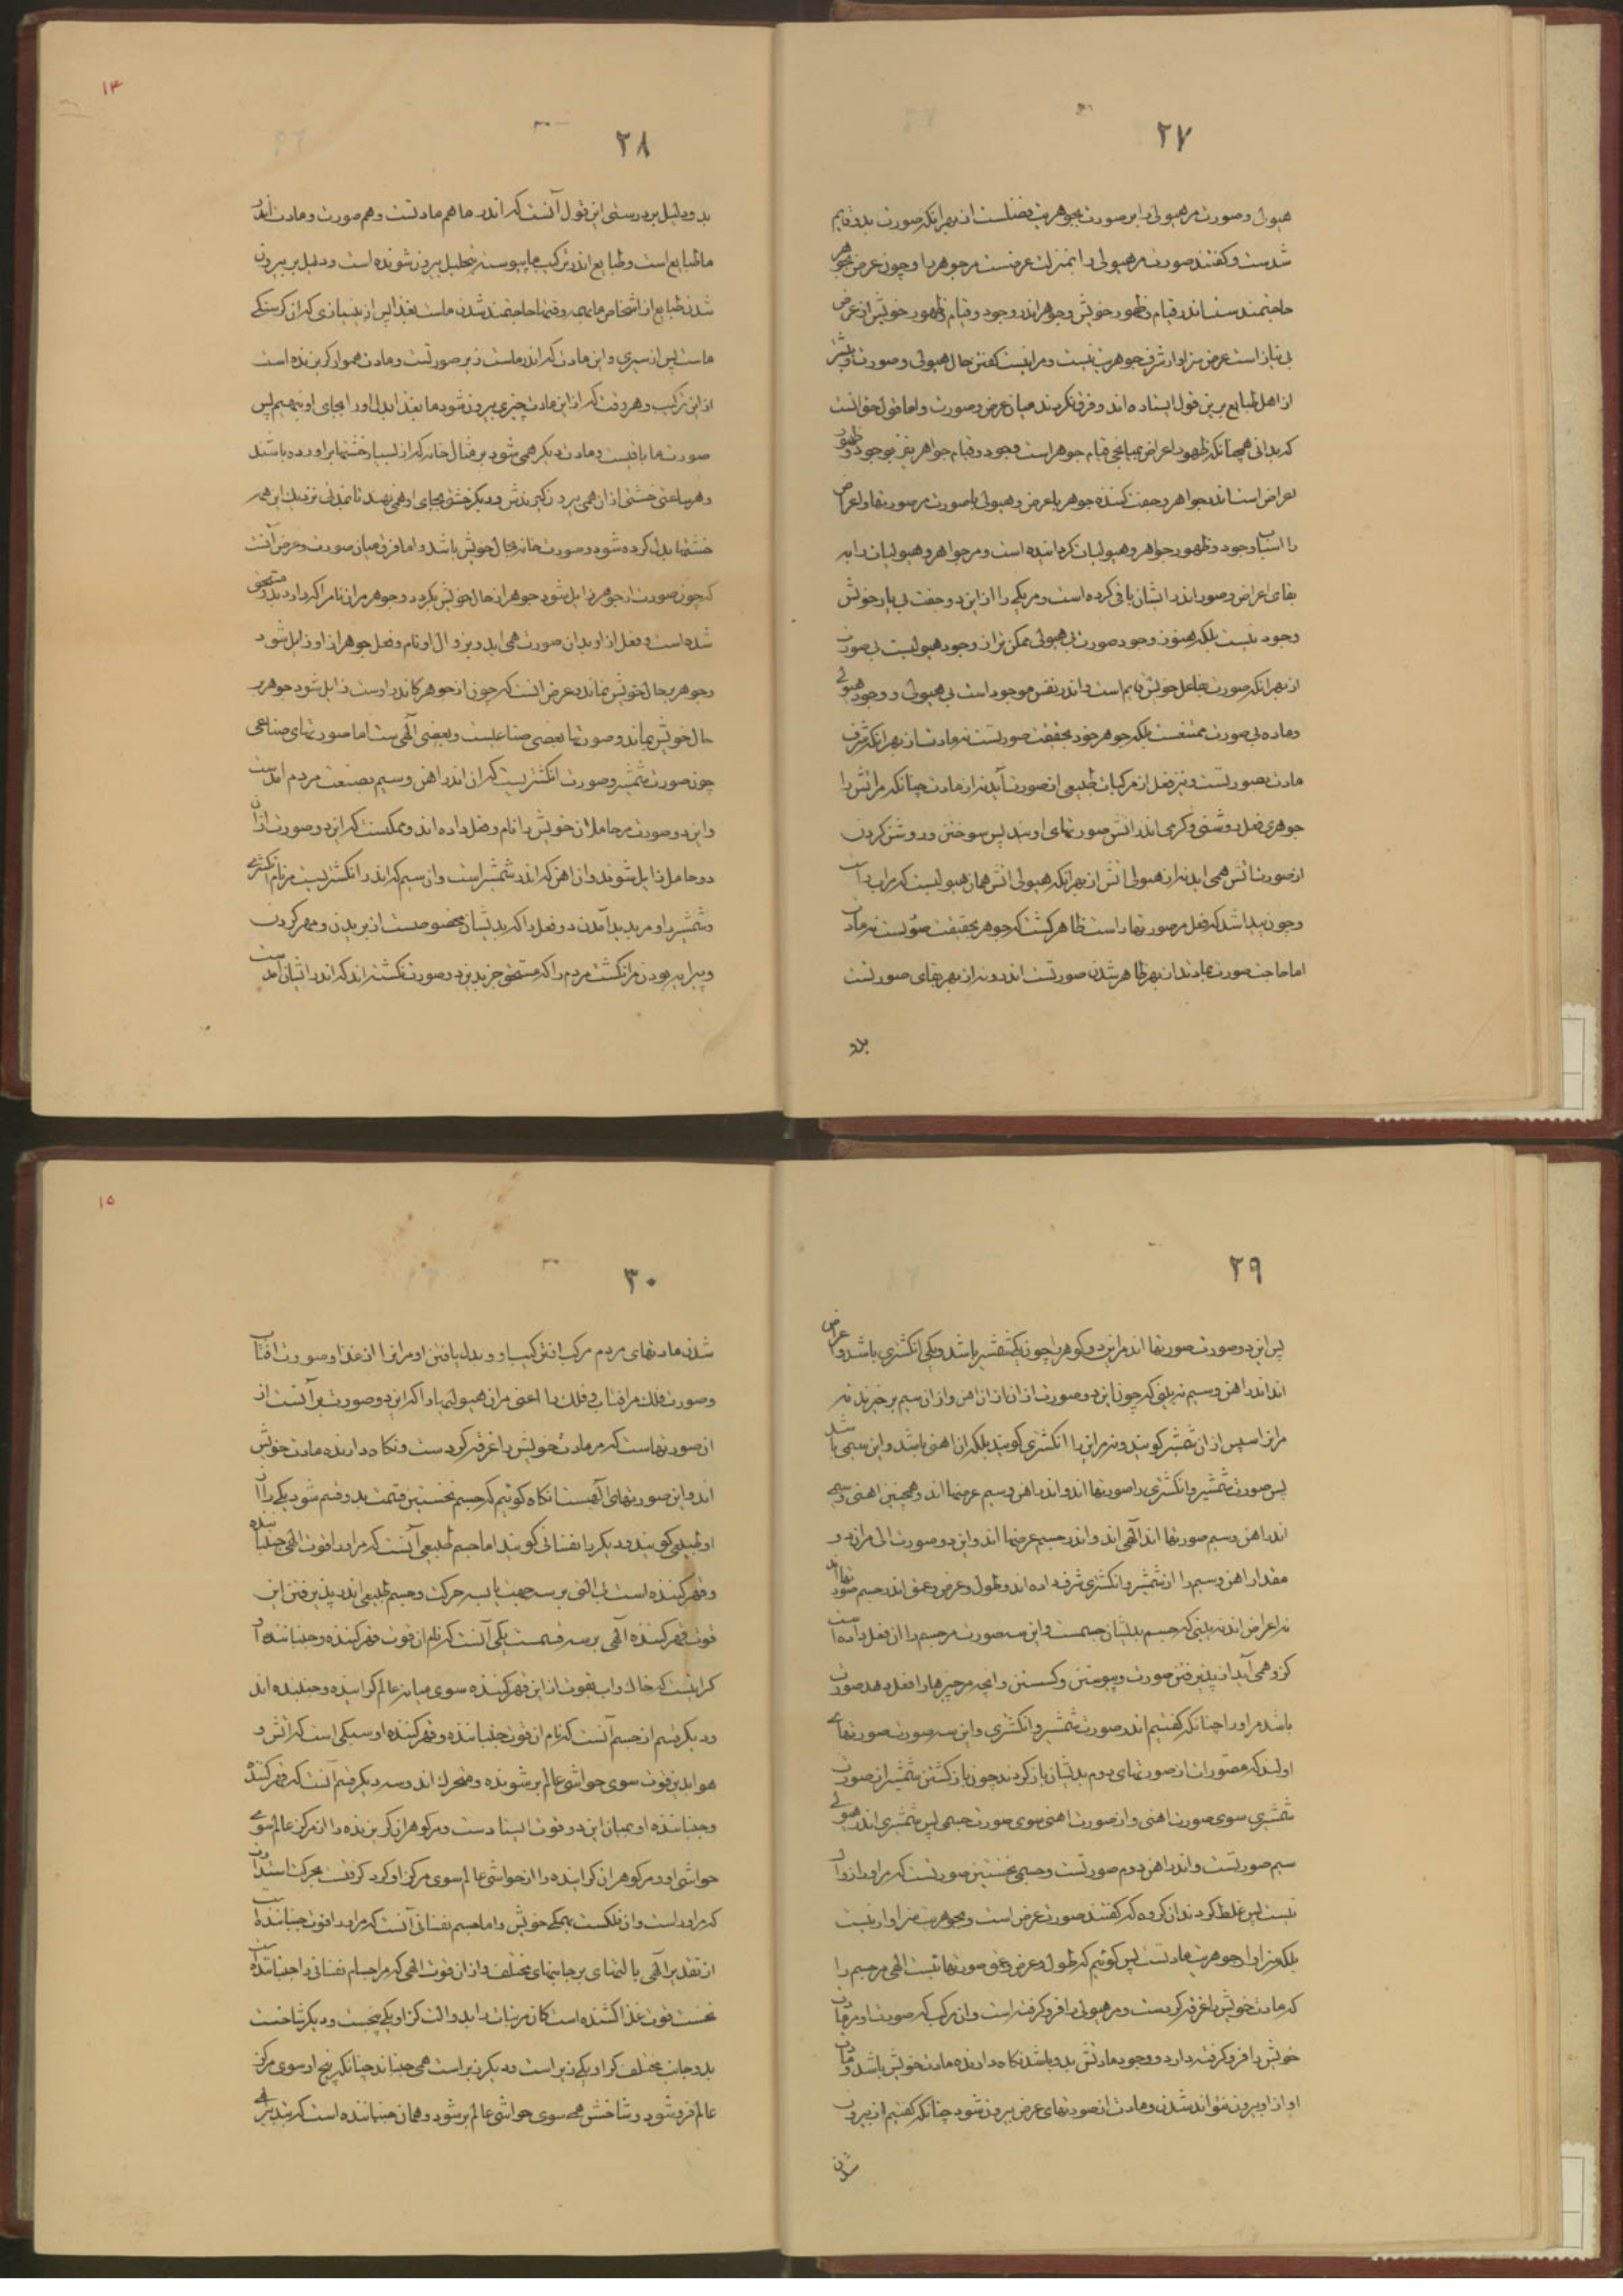 ۲۷
هیولی و صورت مر هیولی را بر صورت بجوهریت فضلست از بهر انکه صورت بدو قایم
شدست و گفتند صورت مر هیولی را بمنزلت عرضست مر جوهر را و چون عرض بجوهر
حاجتمند ست اندر قیام و ظهور خویش و جوهر اندر وجود و قیام و ظهور خویش از عرض
بی نیاز است عرض سزاوار شرف جوهریت نیست و مرا نیست گفتن حال هیولی و صورت و بیشتر
از اهل طبایع برین قول ایستاده اند و فرق نکردند میان عرض و صورت و اما قول حق انست
که بدانی همچنانکه ظهور اعراض بمیانجی قیام جوهر است وجود و قیام جواهر نیز بوجود و ظهور
اعراض است اندر جواهر و جفت کننده جوهر با عرض و هیولی با صورت مر صورتها و اعراض
را اسباب وجود و ظهور جواهر و هیولیات کردانیده است و مر جواهر و هیولیات را به
بقای اعراض و صور اندر ایشان باقی کرده است و مر یکی را از این دو جفت بی یار خویش
وجود نیست بلکه هنوز وجود صورت بی هیولی ممکن تر از وجود هیولیست بی صورت
از بهر انکه صورت بفاعل خویش قایم است و اندر نفس موجود است بی هیولی و وجود هیولی
و ماده بی صورت ممتنعست بلکه جوهر خود بحقیقت صورتست نه مادت از بهر انکه شرف
مادت بصورتست و نیز فعل از مرکبات طبیعی از صورت آید نه از مادت چنانکه مر اتش را
جوهری فعل روشنی و گرمی اندر اتش صورتهای اویند پس سوختن و روشن کردن
از صورت اتش همی اید نه از هیولی اتش از بهر انکه هیولی اتش همان هیولیست که مر اب راست
و چون پیدا شد که فعل مر صورتها راست ظاهر گشت که جوهر بحقیقت صورتست نه مادت
اما حاجت صورت بمادت از بهر ظاهر شدن صورتست اندر و نه از بهر بقای صورتست
بدو
۱۴
۲۸
بدو و دلیل بر درستی این قول آنست که اندر ما هم مادتست و هم صورت و مادت اندر
ما طبایع است و طبایع اندر ترکیب ما پیوسته بتحلیل بیرون شونده است و دلیل بر بیرون
شدن طبایع از اشخاص ما بهمه وقتها حاجتمند شدن ماست بغذا پس از بی نیازی که ان گرسنگی
ماست پس از سیری و این مادت که اندر ماست زیر صورتست و مادت هموار گریزنده است
از این ترکیب و هر وقت که از این مادت چیزی بیرون شود ما بغذا بدل او را بجای او بنهیم پس
صورت ما باقیست و مادت دیگر همی شود بر مثال خانه که از بسیار خشتها بر اورده باشند
و هر ساعتی خشتی از ان همی بیرون گیرندش و دیگر خشتی بجای او همی نهند تا بمدتی نزدیک این همه
خشتها بدل کرده شود و صورت خانه بحال خویش باشد و اما فرق میان صورت و عرض آنست
که چون صورت از جوهر زایل شود جوهر از حال خویش بگردد و جوهر مر ان نام را که دارد بدو مستحق
شده است و فعل از او بدان صورت همی اید و بزوال او نام و فعل جوهر از او زایل شود
و جوهر بحال خویش نماند و عرض انست که چون از جوهر که اندر اوست زایل شود جوهر به
حال خویش بماند و صورتها بعضی صناعیست و بعضی الهی است اما صورتهای صناعی
چون صورت شمشیر و صورت انگشتریست که ان اندر اهن و سیم بصنعت مردم امدست
و این دو صورت مر حاملان خویش را نام و فعل داده اند و ممکنست که این دو صورت از ان
دو حامل زایل شوند و ان اهن که اندر شمشیر است و ان سیم که اندر انگشتریست مر نام انگشتری
و شمشیر را و مر پدید آمدن دو فعل را که بدیشان مخصوصست از بریدن و مهر کردن
و پیرایه بودن مر انگشت مردم را که مستحق جز بدین دو صورت نگشته اند که اندر ایشان امدست
۲۹
پس این دو صورت صورتها اند مر این دو گوهر را چون یکی شمشیر باشد و یکی انگشتری باشد و اعراض
اند اندر اهن و سیم نه بینی که چون این دو صورت از ان از ان اهن و از ان سیم بر خیزند نه
مر انرا سپس از ان شمشیر گویند و نه مر این را انگشتری گویند بلکه ان اهنی باشد و این سیمی باشد
پس صورت شمشیر و انگشتری را صورتها اند و اندر اهن و سیم عرضها اند و همچنین اهنی و سیمی
اندر اهن و سیم صورتها اند الهی اند و اندر جسم عرضها اند و این دو صورت الهی مر ان دو
مقدار اهن و سیم را از شمشیر و انگشتری شرف داده اند و طول و عرض و عمق اندر جسم صورتها اند
نه اعراض اند نه بینی که جسم بدیشان جسمست و این سه صورت مر جسم را ان فعل داده است
کز و همی آید از پذیرفتن صورت و پیوستن و گسستن و انچه مر چیزها را فعل دهد صورت
باشد مر او را چنانکه گفتیم اندر صورت شمشیر و انگشتری و این سه صورت صورتهای
اولند که مصورات از صورتهای دوم بدیشان باز گردند چون باز گشتن شمشیر از صورت
شمشیری سوی صورت اهنی و از صورت اهنی سوی صورت جسمی پس شمشیری اندر هیولی
سیم صورتست و اندر اهن دوم صورتست و جسمی نخستین صورتست که مر او را زوال
نیست پس غلط کردند ان گروه که گفتند صورت عرض است و بجوهریت سزاوار نیست
بلکه سزاوار جوهریت مادتست پس گوئیم که طول و عرض و عمق صورتهاست الهی مر جسم را
که مادت خویش را غرقه کردست و مر هیولی را فرو گرفته است و ان مرکب که صورت او مر مادت
خویش را فرو گرفته دارد و وجود مادتش بدو باشد نگاه دارنده مادت خویش باشد و مادت
او از او بیرون نتواند شدن و مادت از صورتهای عرض بیرون شود چنانکه گفتیم از بیرون
شدن
۱۵
۳۰
شدن مادتهای مردم مرکب از ترکیب او و بدل یافتن او مر انرا از غذا و صورت افتاب
و صورت فلک مر افتاب و فلک را اعنی مر ان هیولیها را که این دو صورت بر آنست از
ان صورتهاست که مر مادت خویش را غرقه کردست و نگاه دارنده مادت خویش
اند و این صورتهای الهیست انگاه گوئیم که جسم نخستین قسمت بدو قسم شود یکی را از
او طبیعی گویند و دیگر را نفسانی گویند اما جسم طبیعی آنست که مر او را قوت الهی جنباننده
و قهر کننده است بی التی بر سه جهت با سه حرکت و جسم طبیعی اندر پذیرفتن این
قوت قهر کننده الهی بر سه قسمت یکی آنست که نام ان قوت قهر کننده و جنباننده او
گرانیست که خاک و اب بقوت از این قهر کننده سوی میانه عالم گراینده و جنبنده اند
و دیگر قسم از جسم آنست که نام ان قوت جنباننده و قهر کننده او سبکی است که اتش و
هوا بدین قوت سوی حواشی عالم بر شونده و متحرک اند و سه دیگر قسم انست که قهر کننده
و جنباننده او بمیان این دو قوت ایستادست و مر گوهران گریزنده را از مرکز عالم سوی
حواشی او و مر گوهران گراینده را از حواشی عالم سوی مرکز او گرد گرفتست بحرکت استدارت
که مر او راست و ان فلکست بهمگی خویش و اما جسم نفسانی آنست که مر او را قوت جنباننده است
از تقدیر الهی با لتهای بر جانبهای مختلف و از ان قوت الهی که مر اجسام نفسانی را جنباننده است
نخست قوت غذا کشنده است کان مر نبات راید و الت کز او یکی بیخست و دیگر شاخست
بدو جانب مختلف کز او یکی زیر است و دیگر زبر است همی جنباند چنانکه بیخ او سوی مرکز
عالم فرو شود و شاخش همی سوی حواشی عالم بر شود و همان جنباننده است که بتدبیر الهی